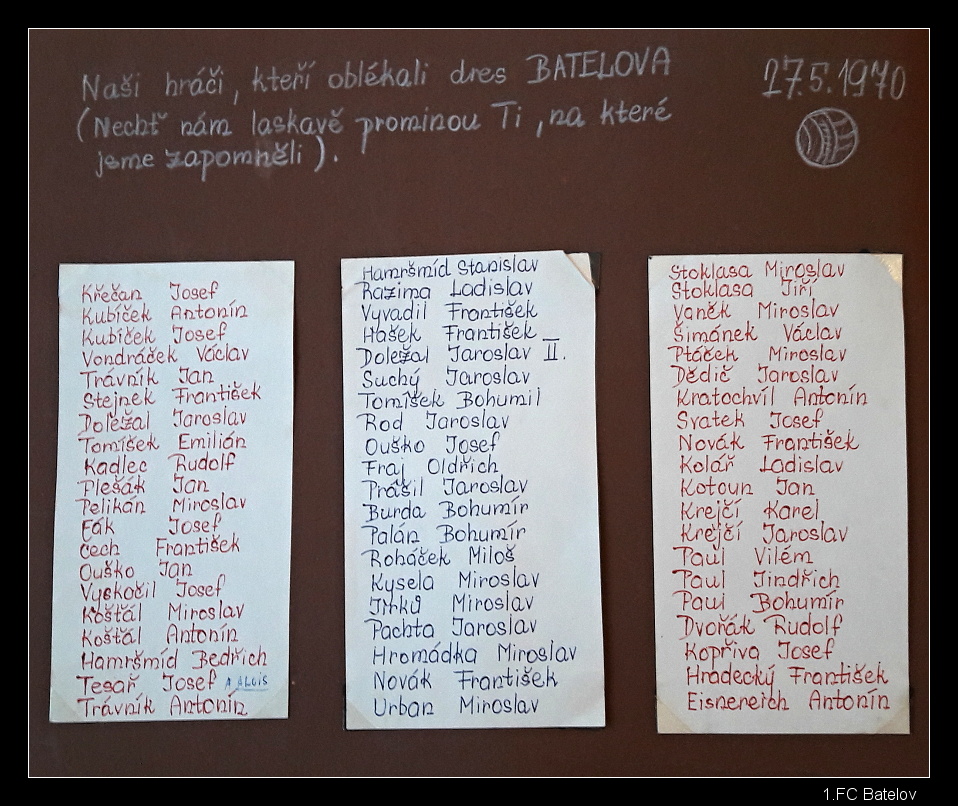 Naši hráči, kteří oblékali dres BATELOVA
(Nechť nám laskavě prominou Ti, na které
jsme zapomněli).
27.5.1970
Křečan Josef
Kubíček Antonín
Kubíček Josef
Vondráček Václav
Trávník Jan
Stejnek František
Doležal Jaroslav
Tomíšek Emilián
Kadlec Rudolf
Plešák Jan
Pelikán Miroslav
Fák Josef
Čech František
Ouško Jan
Vyskočil Josef
Košťál Miroslav
Košťál Antonín
Hamršmíd Bedřich
Tesař Josef A ALOIS
Trávník Antonín
Hamršmíd Stanislav
Razima Ladislav
Vyvadil František
Hašek František
Doležal Jaroslav II.
Suchý Jaroslav
Tomíšek Bohumil
Rod Jaroslav
Ouško Josef
Fraj Oldřich
Prášil Jaroslav
Burda Bohumír
Palán Bohumír
Roháček Miloš
Kysela Miroslav
Jirků Miroslav
Pachta Jaroslav
Hromádka Miroslav
Novák František
Urban Miroslav
Stoklasa Miroslav
Stoklasa Jiří
Vaněk Miroslav
Šimánek Václav
Ptáček Miroslav
Dědič Jaroslav
Kratochvíl Antonín
Svatek Josef
Novák František
Kolář Ladislav
Kotoun Jan
Krejčí Karel
Krejčí Jaroslav
Paul Vilém
Paul Jindřich
Paul Bohumír
Dvořák Rudolf
Kopřiva Josef
Hradecký František
Eisnereich Antonín
1.FC Batelov